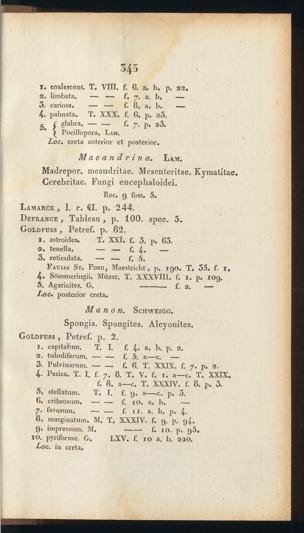 345
1. coalescens. T. VIII. f. 6. a. b. p. 22.
2. limbata. — — f. 7. a. b. —
3. cariosa. — — f. 8. a. b. —
4. palmata. T. XXX. f. 6. p. 23.
5. { glabra. — — f. 7. p. 23.
{ Pocillopora, LAM.
Loc. creta anterior et posterior.
Maeandrina. LAM.
Madrepor. meandritae. Mesenteritae. Kymatitae.
Cerebritae. Fungi encephaloidei.
Rec. 9 foss. 5.
LAMARCK, l. c. II. p. 244.
DEFRANCE, Tableau, p. 100. spec. 5.
GOLDFUSS, Petref. p. 62.
1. astroides. T. XXI. f. 3. p. 63.
2. tenella. — — f. 4. —
3. reticulata. — — f. 5.
FAUJAS ST. FOND, Maestricht, p. 190. T. 35. f. 1.
4. Sömmeringii. MÜNST. T. XXXVIII. f. 1. p. 109.
5. Agaricites. G. —— f. 2. —
Loc. posterior creta.
Manon. SCHWEIGG.
Spongia. Spongites. Alcyonites.
GOLDFUSS, Petref. p. 2.
1. capitatum. T. I. f. 4. a. b. p. 2.
2. tubuliferum, — — f. 5. a—c. —
3. Pulvinarum, — — f. 6. T. XXIX. f. 7. p. 2.
4. Peziza. T. I. f. 7. 8. T. V. f. 1. a—c. T. XXIX.
f. 8. a—c. T. XXXIV. f. 8. p. 3.
5. stellatum. T. I. f. 9. a—c. p. 3.
6. cribrosum. — — f. 10. a. b. —
7. favosum. — — f. 11. a. b. p. 4.
8. marginatum. M. T. XXXIV. f. 9. p. 94.
9. impressum. M. —— f. 10. p. 95.
10. pyriforme. G. LXV. f. 10 a. b. 220.
Loc. in creta.